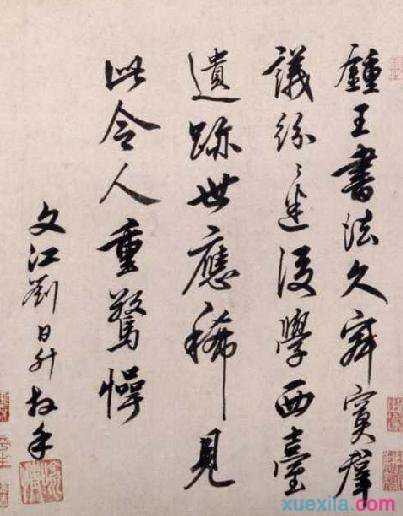 鍾王書法久寂寞群
議紛〻迷後學西臺
遺跡世應稀見
此令人重驚愕
文江劉日升拜手
xuexila.com